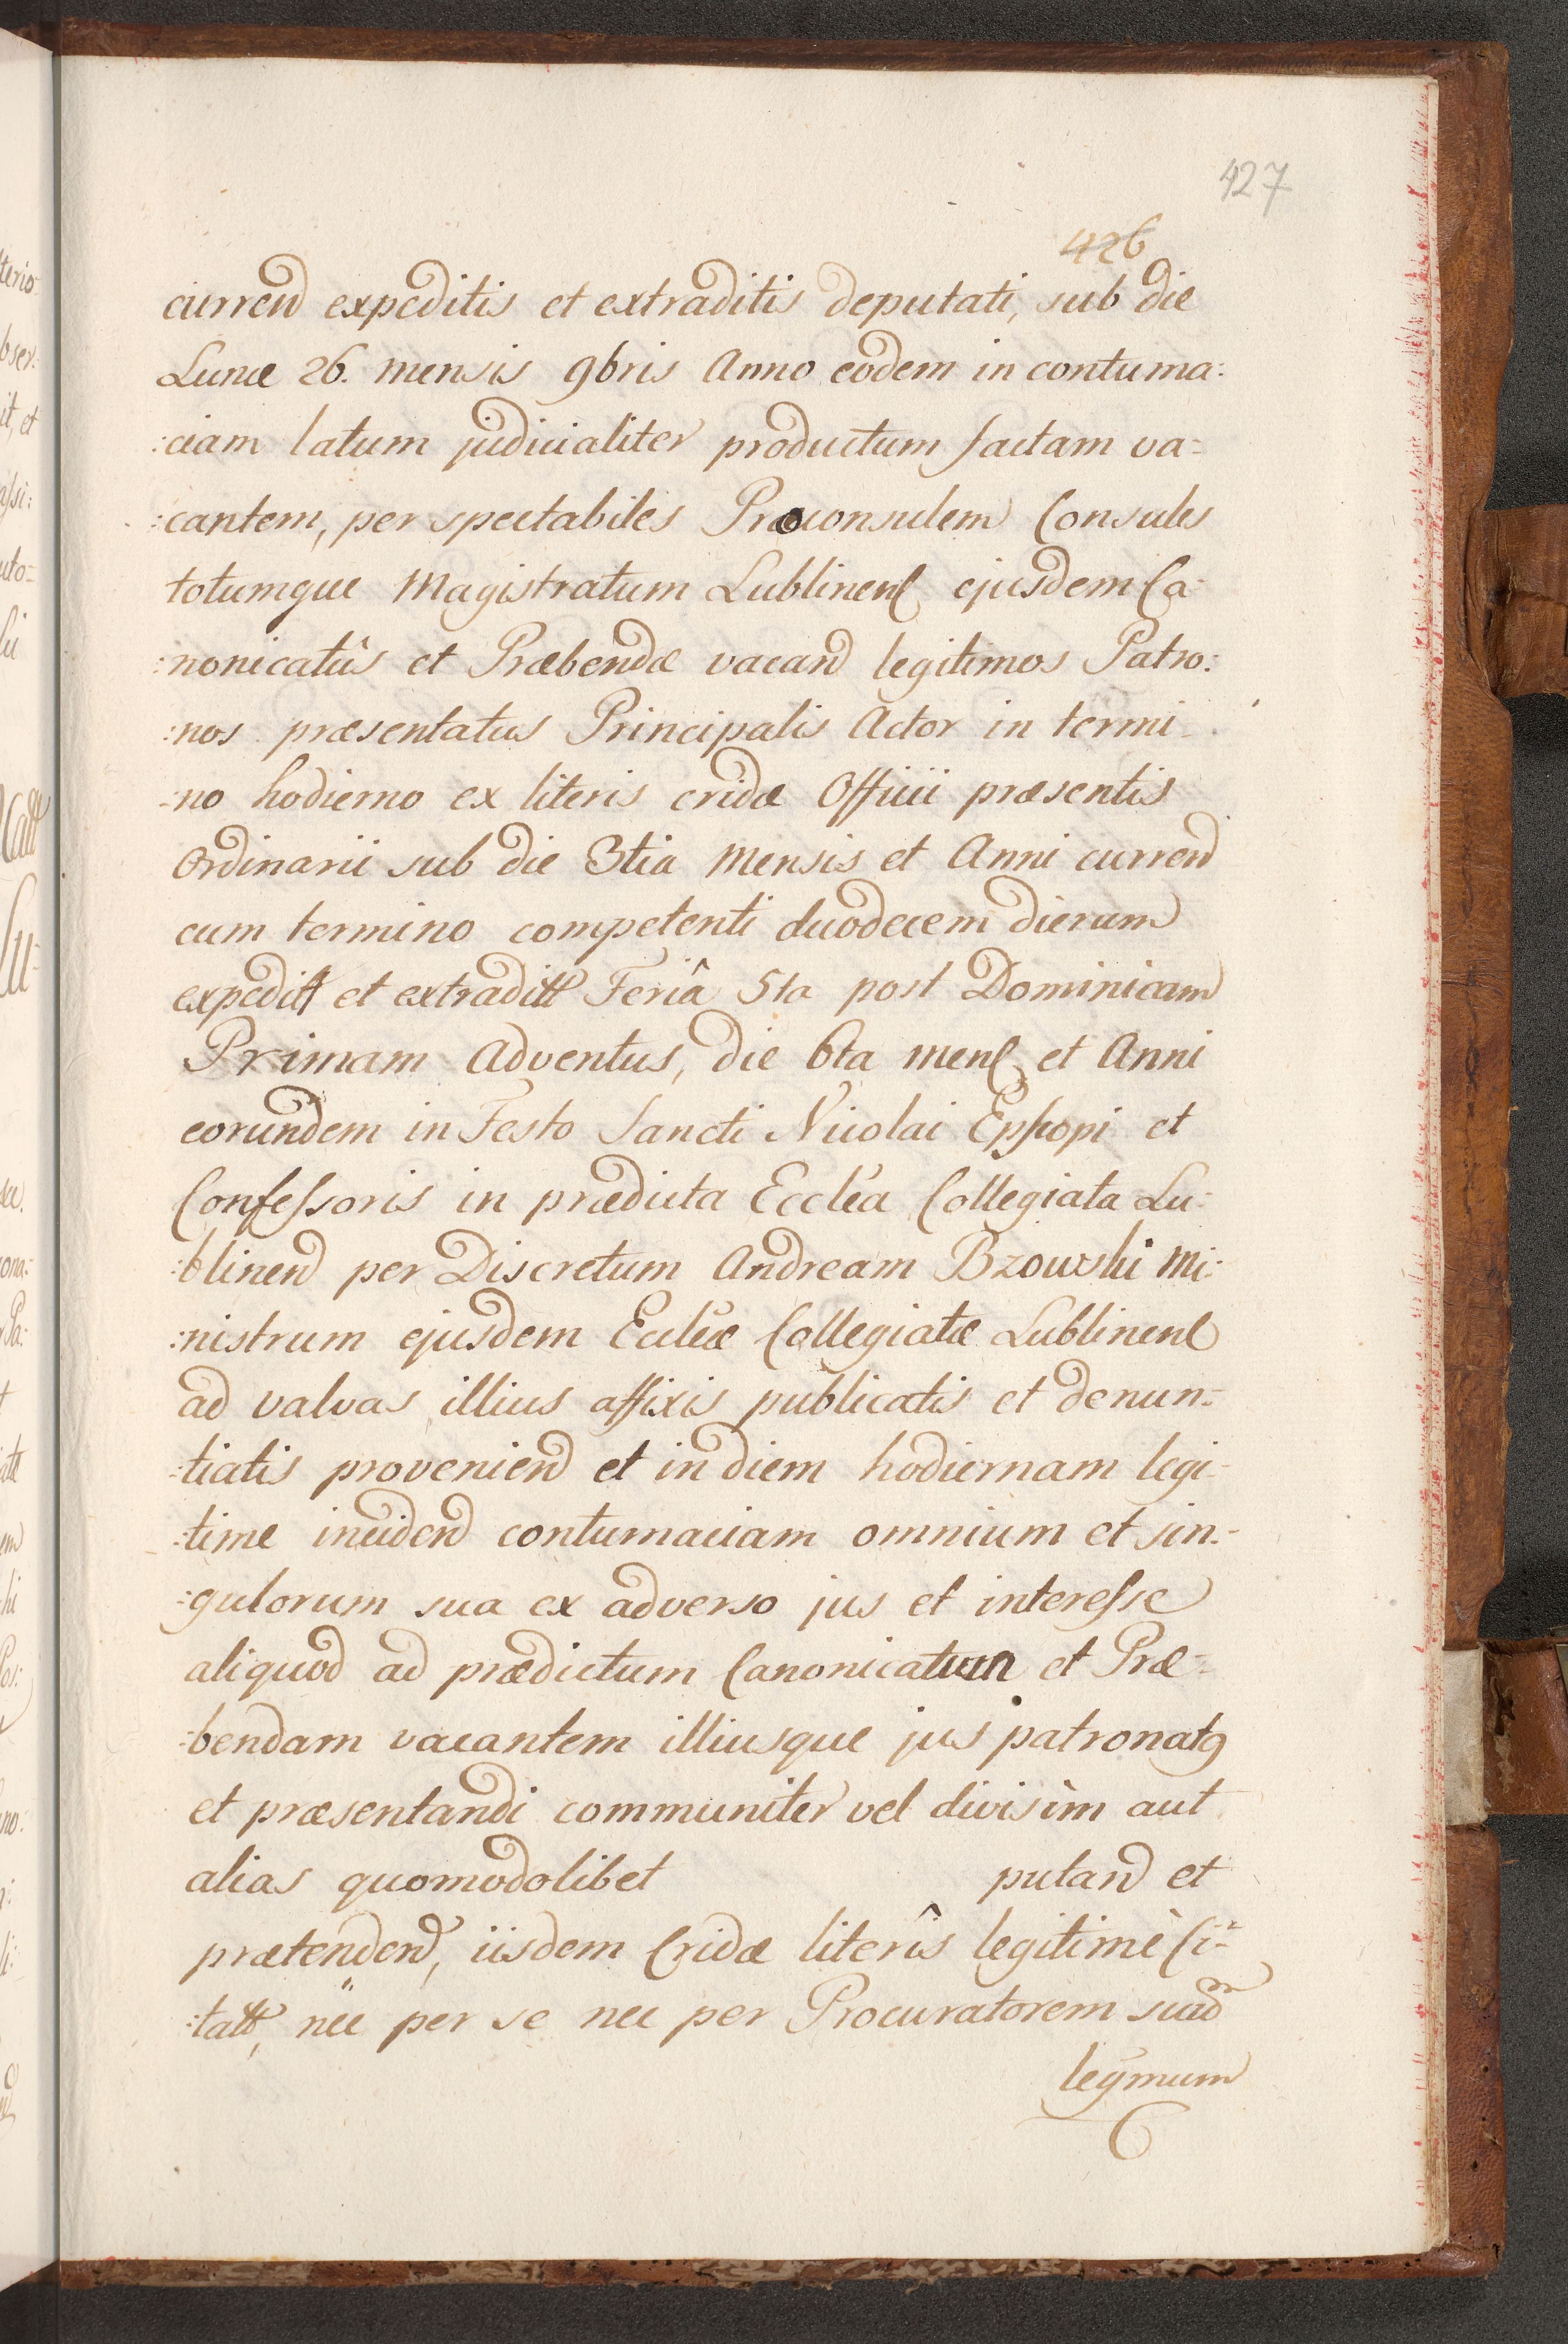 427
426
currend expeditis et extraditis deputati, sub die
Lunæ 26. mensis 9bris Anno eodem in contuma:
:ciam latum judicialiter productum factam va=
:cantem, per spectabiles Proconsulem Consules
totumque Magistratum Lublinens ejusdem Ca:
:nonicatûs et Præbendæ vacand legitimos Patro:
:nos præsentatus Principalis Actor in termi-
-no hodierno ex literis cridæ Officii præsentis
Ordinarii sub die 3tia Mensis et Anni currend
cum termino competenti duodecem dierum
expeditt et extraditt Feriâ 5ta post Dominicam
Primam Adventus, die 6ta mens et Anni
eorundem in Festo Sancti Nicolai Epscopi et
Confessoris in prædicta Eccléa Collegiata Lu:
:blinen per Discretum Andream Bzowski Mi:
:nistrum ejusdem Eccléæ Collegiatæ Lublinens
ad valvas illius affixis publicatis et denun=
:tiatis proveniend et in diem hodiernam legi-
:time incidend contumaciam omnium et sin-
:gulorum sua ex adverso jus et interesse
aliquod ad prædictum Canonicatum et Præ=
:bendam vacantem illiusque jus patronatq
et præsentandi communiter vel divisìm aut
alias quomodolibet putand et
prætendend, iisdem Cridæ literîs legitimè Ci=
:tatt, nec per se nec per Procuratorem suum
legmum